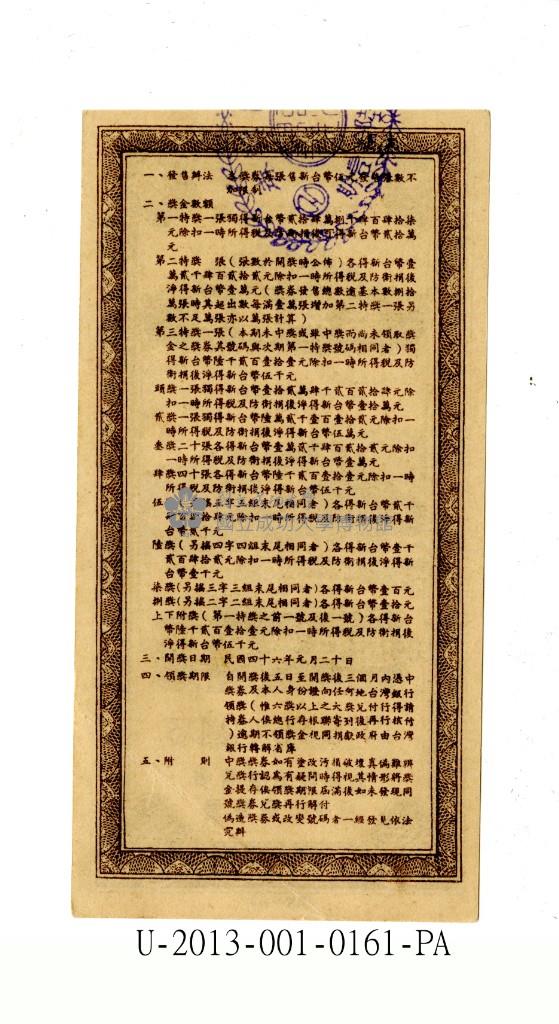 一、發售辦法　本獎券每張售新台幣伍元發售總數不
亦限制
二、獎金數額
第一特獎一張獨得新台幣貳拾肆萬捌千肆百肆拾柒
元除扣一時所得稅及防衛捐後淨得新台幣貳拾萬
元
第二特獎　張(張數於開獎時公佈)各得新台幣壹
萬貳千肆百貳拾貳元除扣一時所得稅及防衛捐後
淨得新台幣壹萬元(獎券發售總數逾基本數捌拾
萬張時其超出數每滿壹萬張增加第二特獎一張另
數不足萬張亦以萬張計算)
第三特獎一張(本期未中獎或雖中獎而尚未領取獎
金之獎券其號碼與次期第一特獎號碼相同者)獨
得新台幣陸千貳百壹拾壹元除扣一時所得稅及防
衛捐後淨得新台幣伍千元
頭獎一張獨得新台幣壹拾貳萬肆千貳百貳拾肆元除
扣一時所得稅及防衛捐後淨得新台幣壹拾萬元
貳獎一張獨得新台幣陸萬貳千壹百壹拾貳元除扣一
時所得稅及防衛捐後淨得新台幣伍萬元
叁獎二十張各得新台幣壹萬貳千肆百貳拾貳元除扣
一時所得稅及防衛捐後淨得新台幣壹萬元
肆獎四十張各得新台幣陸千貳百壹拾壹元除扣一時
所得稅及防衛捐後淨得新台幣伍千元
伍 末尾相同者)各得新台幣貳千
元除扣一時所得稅及防衛捐後淨得新
台幣貳千元
陸獎(另搖四字四組末尾相同者)各得新台幣壹千
貳百肆拾貳元除扣一時所得稅及防衛捐後淨得新
台幣壹千元
柒獎(另搖三字三組末尾相同者)各得新台幣壹百元
捌獎(另搖二字二組末尾相同者)各得新台幣壹拾元
上下附獎(第一特獎之前一號及後一號)各得新台
幣陸千貳百壹拾壹元除扣一時所得稅及防衛捐後
淨得新台幣伍千元
三、開獎日期　民國四十六年元月二十日
四、領獎期限　自開獎後五日至開獎後三個月內憑中
獎券及本人身份證向任何地台灣銀行
領獎(惟六獎以上之大獎兌付行得請
持券人俟總行存根聯寄到後再行核付
)逾期不領獎金視同捐獻政府由台灣
銀行轉解省庫
五、附　　則　中獎獎券如有塗改污損破壞真偽難辨
兌獎行認為有疑問時得視其情形將獎
金提存俟領獎期限屆滿後如未發現同
號獎券兌獎再行解付
偽造獎券或改變號碼者一經發見依法
究辦
國立成功大學博物館
U-2013-001-0161-PA